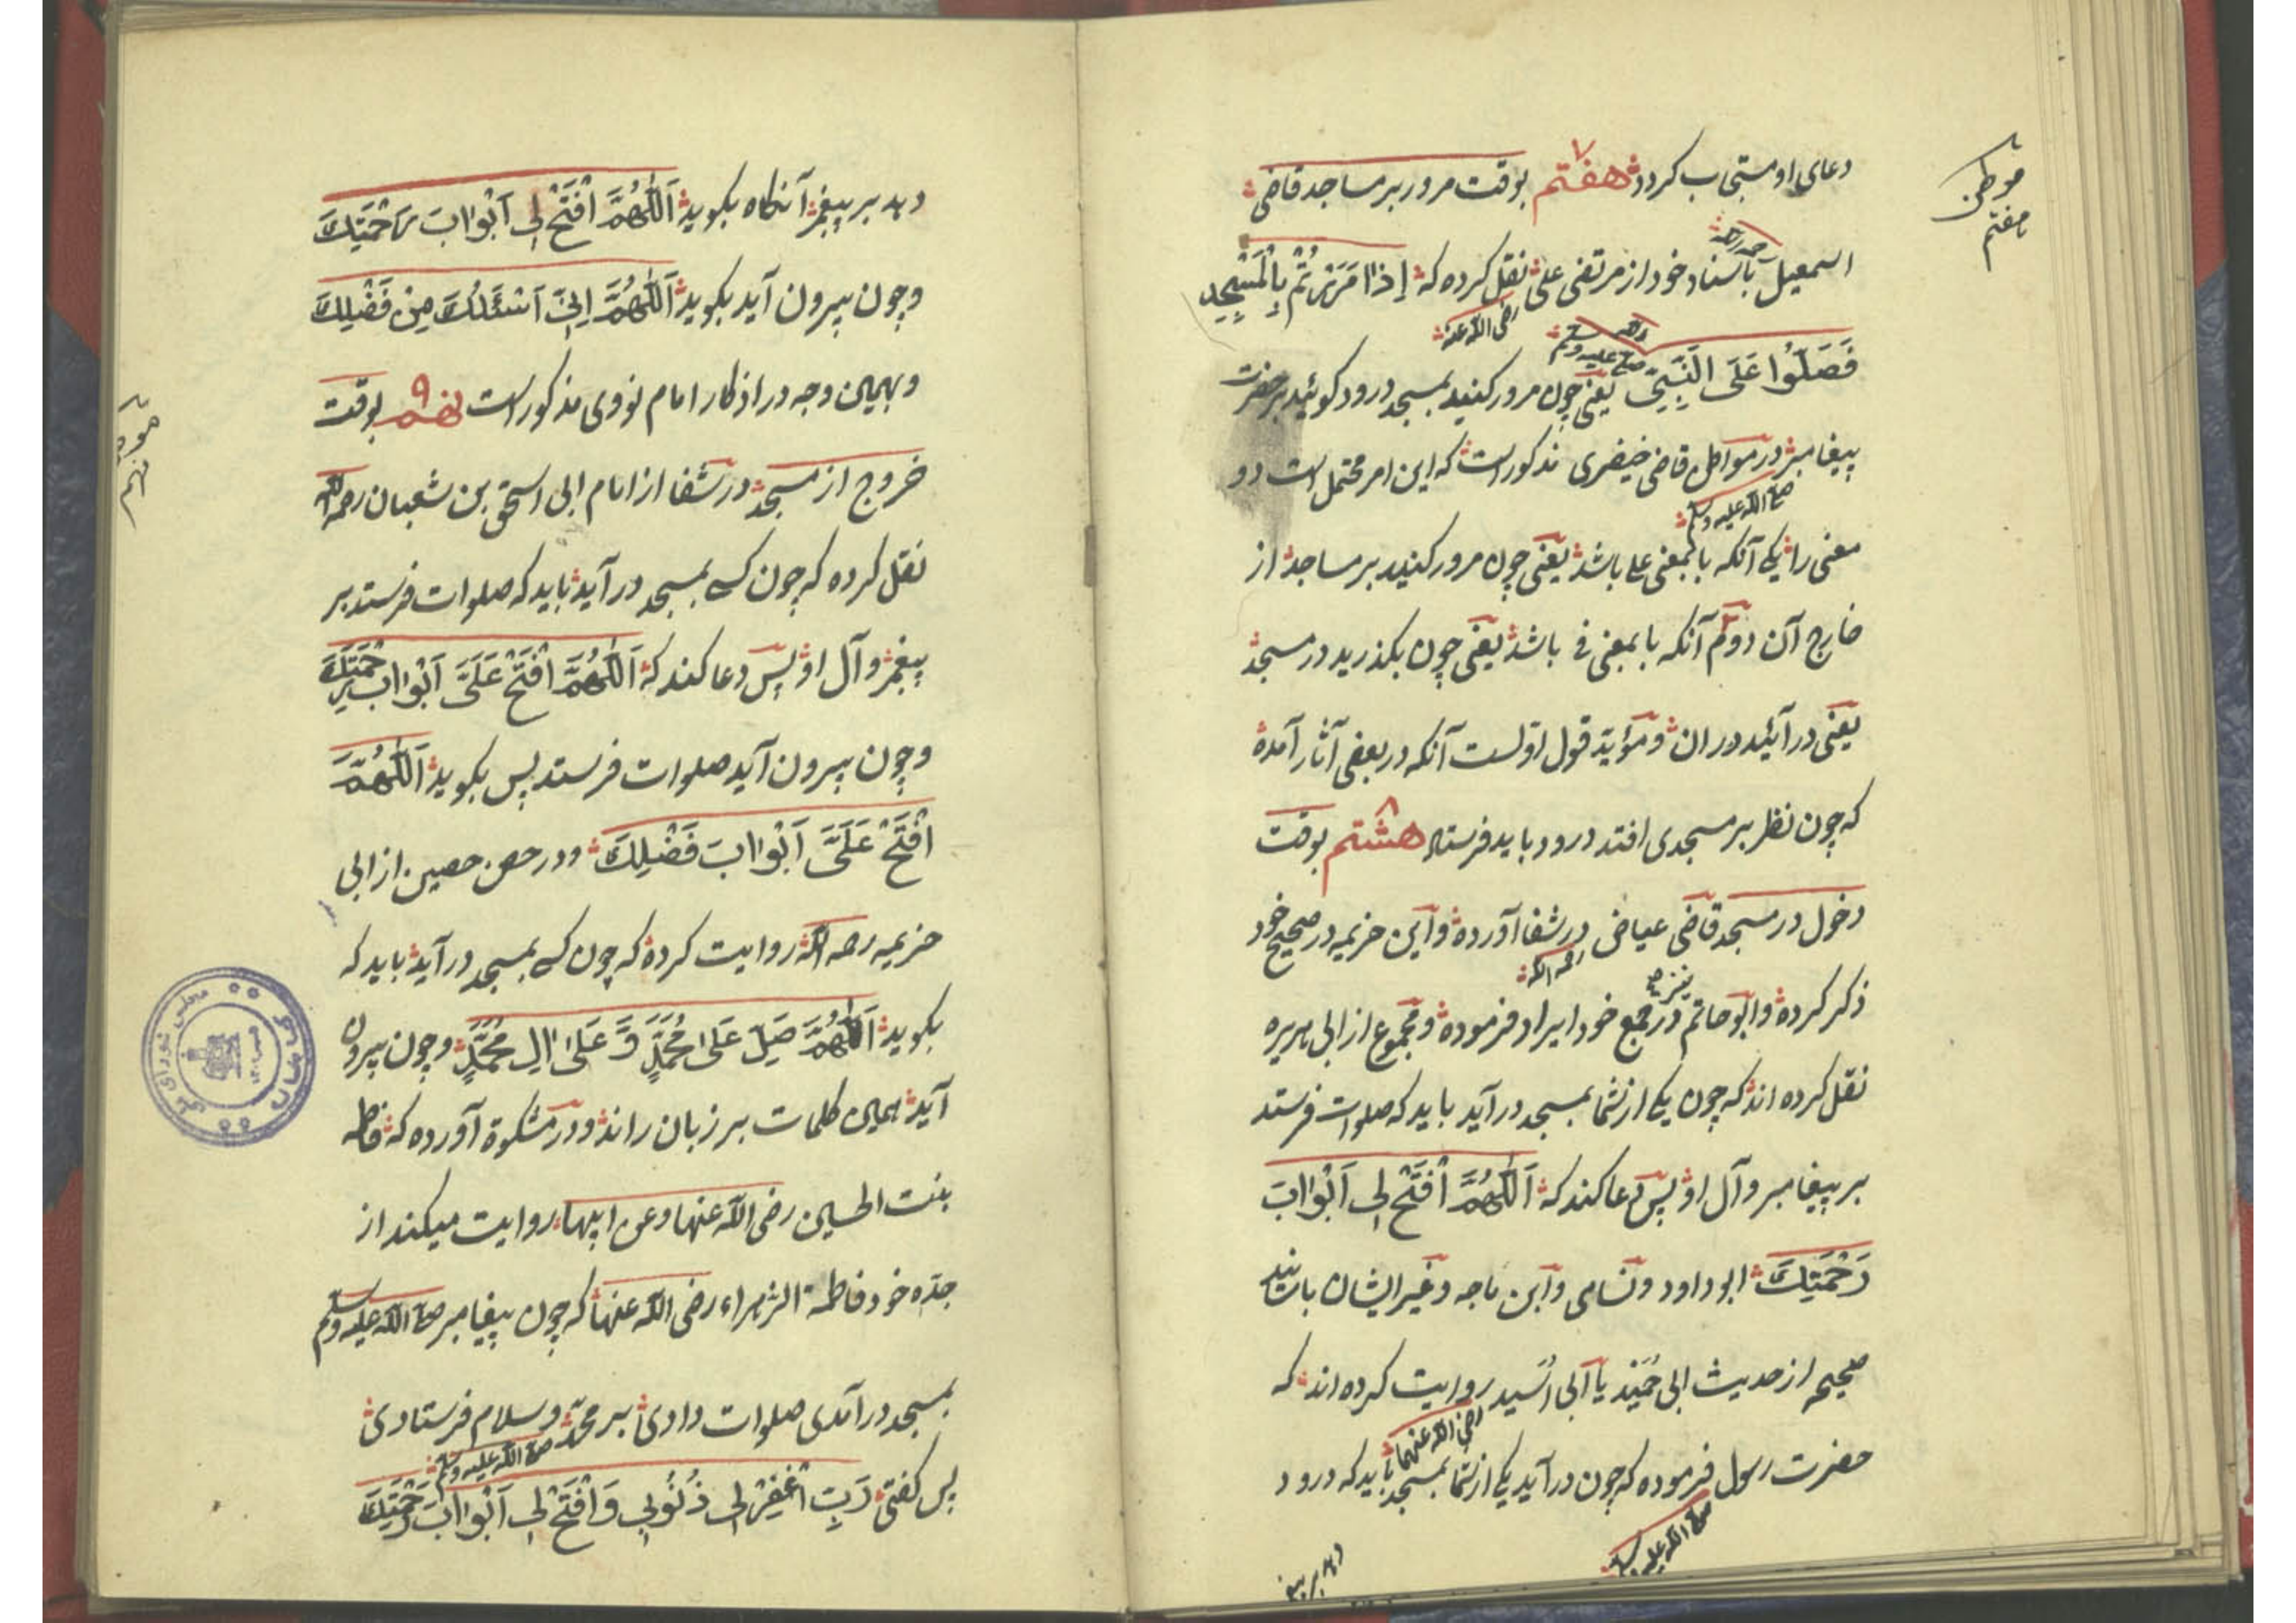 دعای او مستجاب کردد هفتم ۷ بوقت مرور بر مساجد قاضی
موطن هفتم
اسمعیل رحمه باسناد خود از مرتضی علی نقل کرده که إِذَا مَرَرْتُمْ بِالْمَسْجِدِ
رضی الله عنه
فَصَلُّوا عَلَى النَّبِيِّ یعنی چون مرور کنید بمسجد درود کوئید بر حضرت
پیغامبر در مواطن قاضی خیضری مذکور است که این امر محتمل است دو
صلی الله علیه وسلم
معنی را یکی آنکه با بمعنی علی باشد یعنی چون مرور کنید بر مساجد از
خارج آن دوم آنکه با بمعنی فی باشد یعنی چون بکذرید در مسجد
یعنی درآئید در ان و مؤید قول اولست آنکه در بعضی آثار آمده
که چون نظر بر مسجدی افتد درود باید فرستاد هشتم ۸ بوقت
دخول در مسجد قاضی عیاض در شفا آورده و ابن خزیمه در صحیح خود
رحمه الله
ذکر کرده و ابو حاتم نیز در جمع خود ایراد فرموده و مجموع از ابی هریره
نقل کرده اند که چون یکی از شما بمسجد درآید باید که صلوات فرستد
بر پیغامبر و آل او پس دعا کند که اَللّٰهُمَّ افْتَحْ لِي اَبْوَابَ
رَحْمَتِكَ ابو داود و نسامی و ابن ماجه و غیر ایشان باسانید
صحیحه از حدیث ابی حُمَیْد یا ابی اُسَید روایت کرده اند که
رضی الله عنهما
حضرت رسول فرموده که چون درآید یکی از شما بمسجد باید که درود
صلی الله علیه وسلم
دهد بر پیغ
دهد بر پیغمبر آنکاه بکوید اَللّٰهُمَّ افْتَحْ لِي اَبْوَابَ رَحْمَتِكَ
و چون بیرون آید بکوید اَللّٰهُمَّ اِنِّي اَسْئَلُكَ مِنْ فَضْلِكَ
و بهمین وجه در اذکار امام نووی مذکور است نهم ۹ بوقت
خروج از مسجد در شفا از امام ابی اسحق بن شعبان رحمه الله
نقل کرده که چون کسی بمسجد درآید باید که صلوات فرستد بر
پیغمبر و آل او پس دعا کند که اَللّٰهُمَّ افْتَحْ عَلَيَّ اَبْوَابَ رَحْمَتِكَ
و چون بیرون آید صلوات فرستد پس بکوید اَللّٰهُمَّ
افْتَحْ عَلَيَّ اَبْوَابَ فَضْلِكَ و در حصن حصین از ابی
خزیمه رحمه الله روایت کرده که چون کسی بمسجد درآید باید که
بکوید اَللّٰهُمَّ صَلِّ عَلَى مُحَمَّدٍ وَّ عَلَى اٰلِ مُحَمَّدٍ و چون بیرون
آید همین کلمات بر زبان راند و در مشکوة آورده که فاطمه
بنت الحسین رضی الله عنها و عن ابیها روایت میکند از
جدّه خود فاطمة الزهراء رضی الله عنها که چون پیغامبر صلی الله علیه وسلم
بمسجد درآمدی صلوات دادی بر محمّد و سلام فرستادی
صلی الله علیه وسلم
پس کفتی رَبِّ اغْفِرْ لِي ذُنُوبِي وَ افْتَحْ لِي اَبْوَابَ رَحْمَتِكَ
نهم